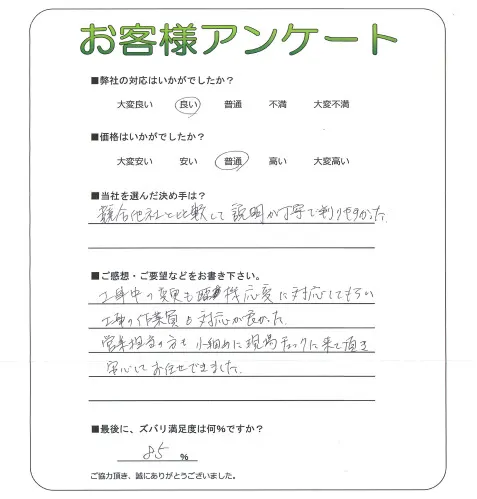 お客様アンケート
■弊社の対応はいかがでしたか？
大変良い 良い 普通 不満 大変不満
■価格はいかがでしたか？
大変安い 安い 普通 高い 大変高い
■当社を選んだ決め手は？
競合他社と比較して説明が丁寧で判りやすかった
■ご感想・ご要望などをお書き下さい。
工事中の変更も臨機応変に対応してもらい
工事の作業員も対応が良かった.
営業担当の方も小細めに現場チェックに来て頂き
安心してお任せできました.
■最後に、ズバリ満足度は何%ですか？
85 %
ご協力頂き、誠にありがとうございました。